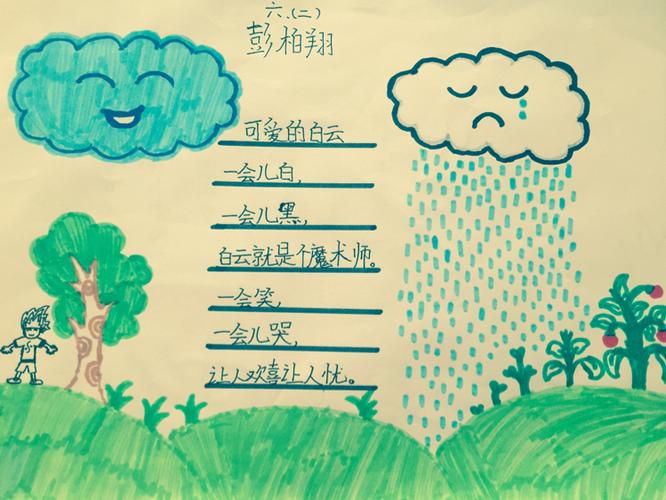 六.(二)
彭柏翔
可爱的白云
一会儿白,
一会儿黑,
白云就是个魔术师。
一会笑,
一会儿哭,
让人欢喜让人忧。